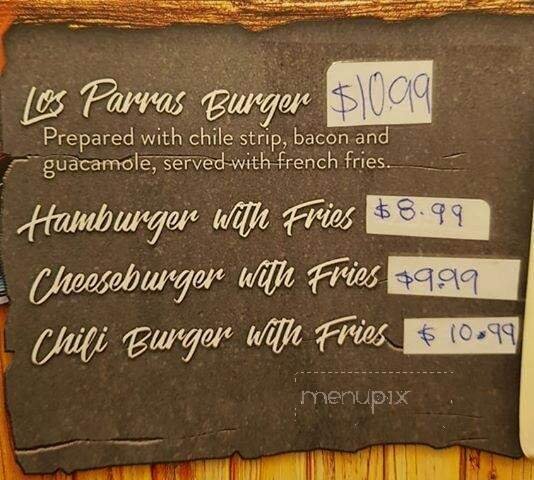 Los Parras Burger $10.99
Prepared with chile strip, bacon and
guacamole, served with french fries.
Hamburger with Fries $8.99
Cheeseburger with Fries $9.99
Chili Burger with Fries $10.99
menupix